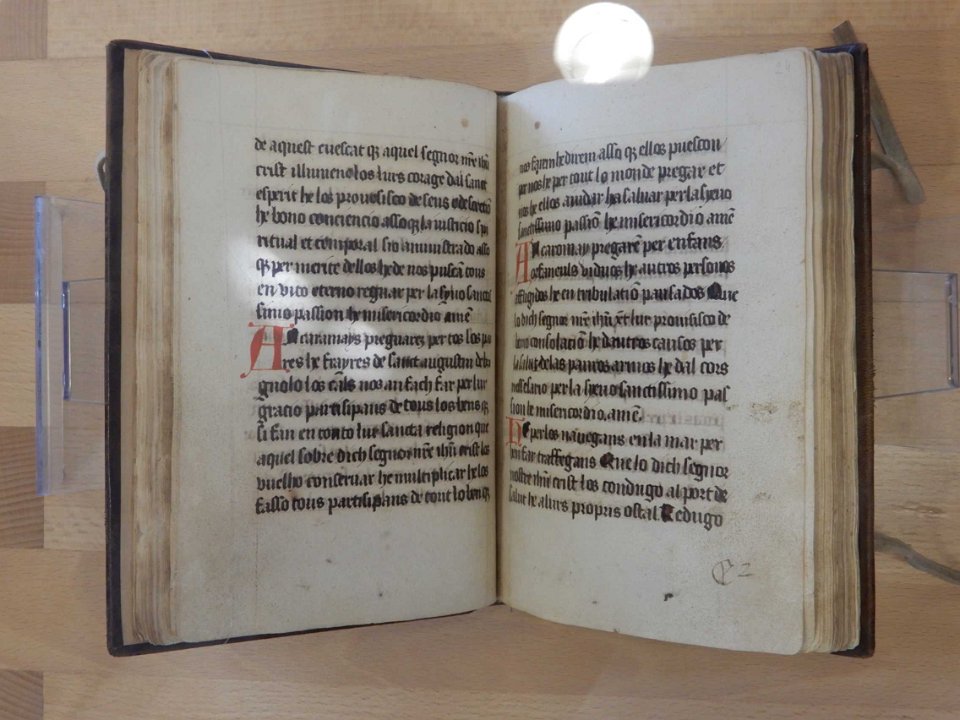 de aquest euescat q̄ aquel segnor nr̄e ihū
crist illumene los lurs corage dal sanct
esperit he los prouesisco de sens o de soretio
he bono conciencio asso q̄ la iusticio spi
ritual et temporal sio aministrado asso
q̄ per merite dellos he de nos puscā tous
en vito eterno regnar per la syno sancti
simo passion he misericordio amē
At caramays preguarez per tos los pa
res he frayres de sanct augustin de
gnolo los cāls nos an fach far per lur
gracio partisipans de tous los bens q̄
si fan en touto lur sancta religion que
aquel sobre dich segnor nr̄e ihū crist los
vuelho conseruar he multiplicar he los
fasso tous partisipans de tout lo ben q̄
nos farem he direm asso q̄ ellos puescou
per nos he per tout lo monde pregar et
nos he ellos aiudar ha saluar per la syeno
sanctissimo passiō he misericordio amē
At caramay pregarē per enfans
orfaneuls viduos he autros personos
affligidos he en tribulatiō pausados Que
lo dich segnor nr̄e ihū xr̄t lur prouesisco de
bono consolatiō he dautros causos per
la salut de las pauros armos he dal cors
nessesario per la syeno sanctissimo pas
sion he misericordio. amē.
He per los nauegans en la mar per
ben far traffegans Que lo dich segnor
nostre ihū crist los condugo al port de
salut he a lurs propris ostal Redugo
24